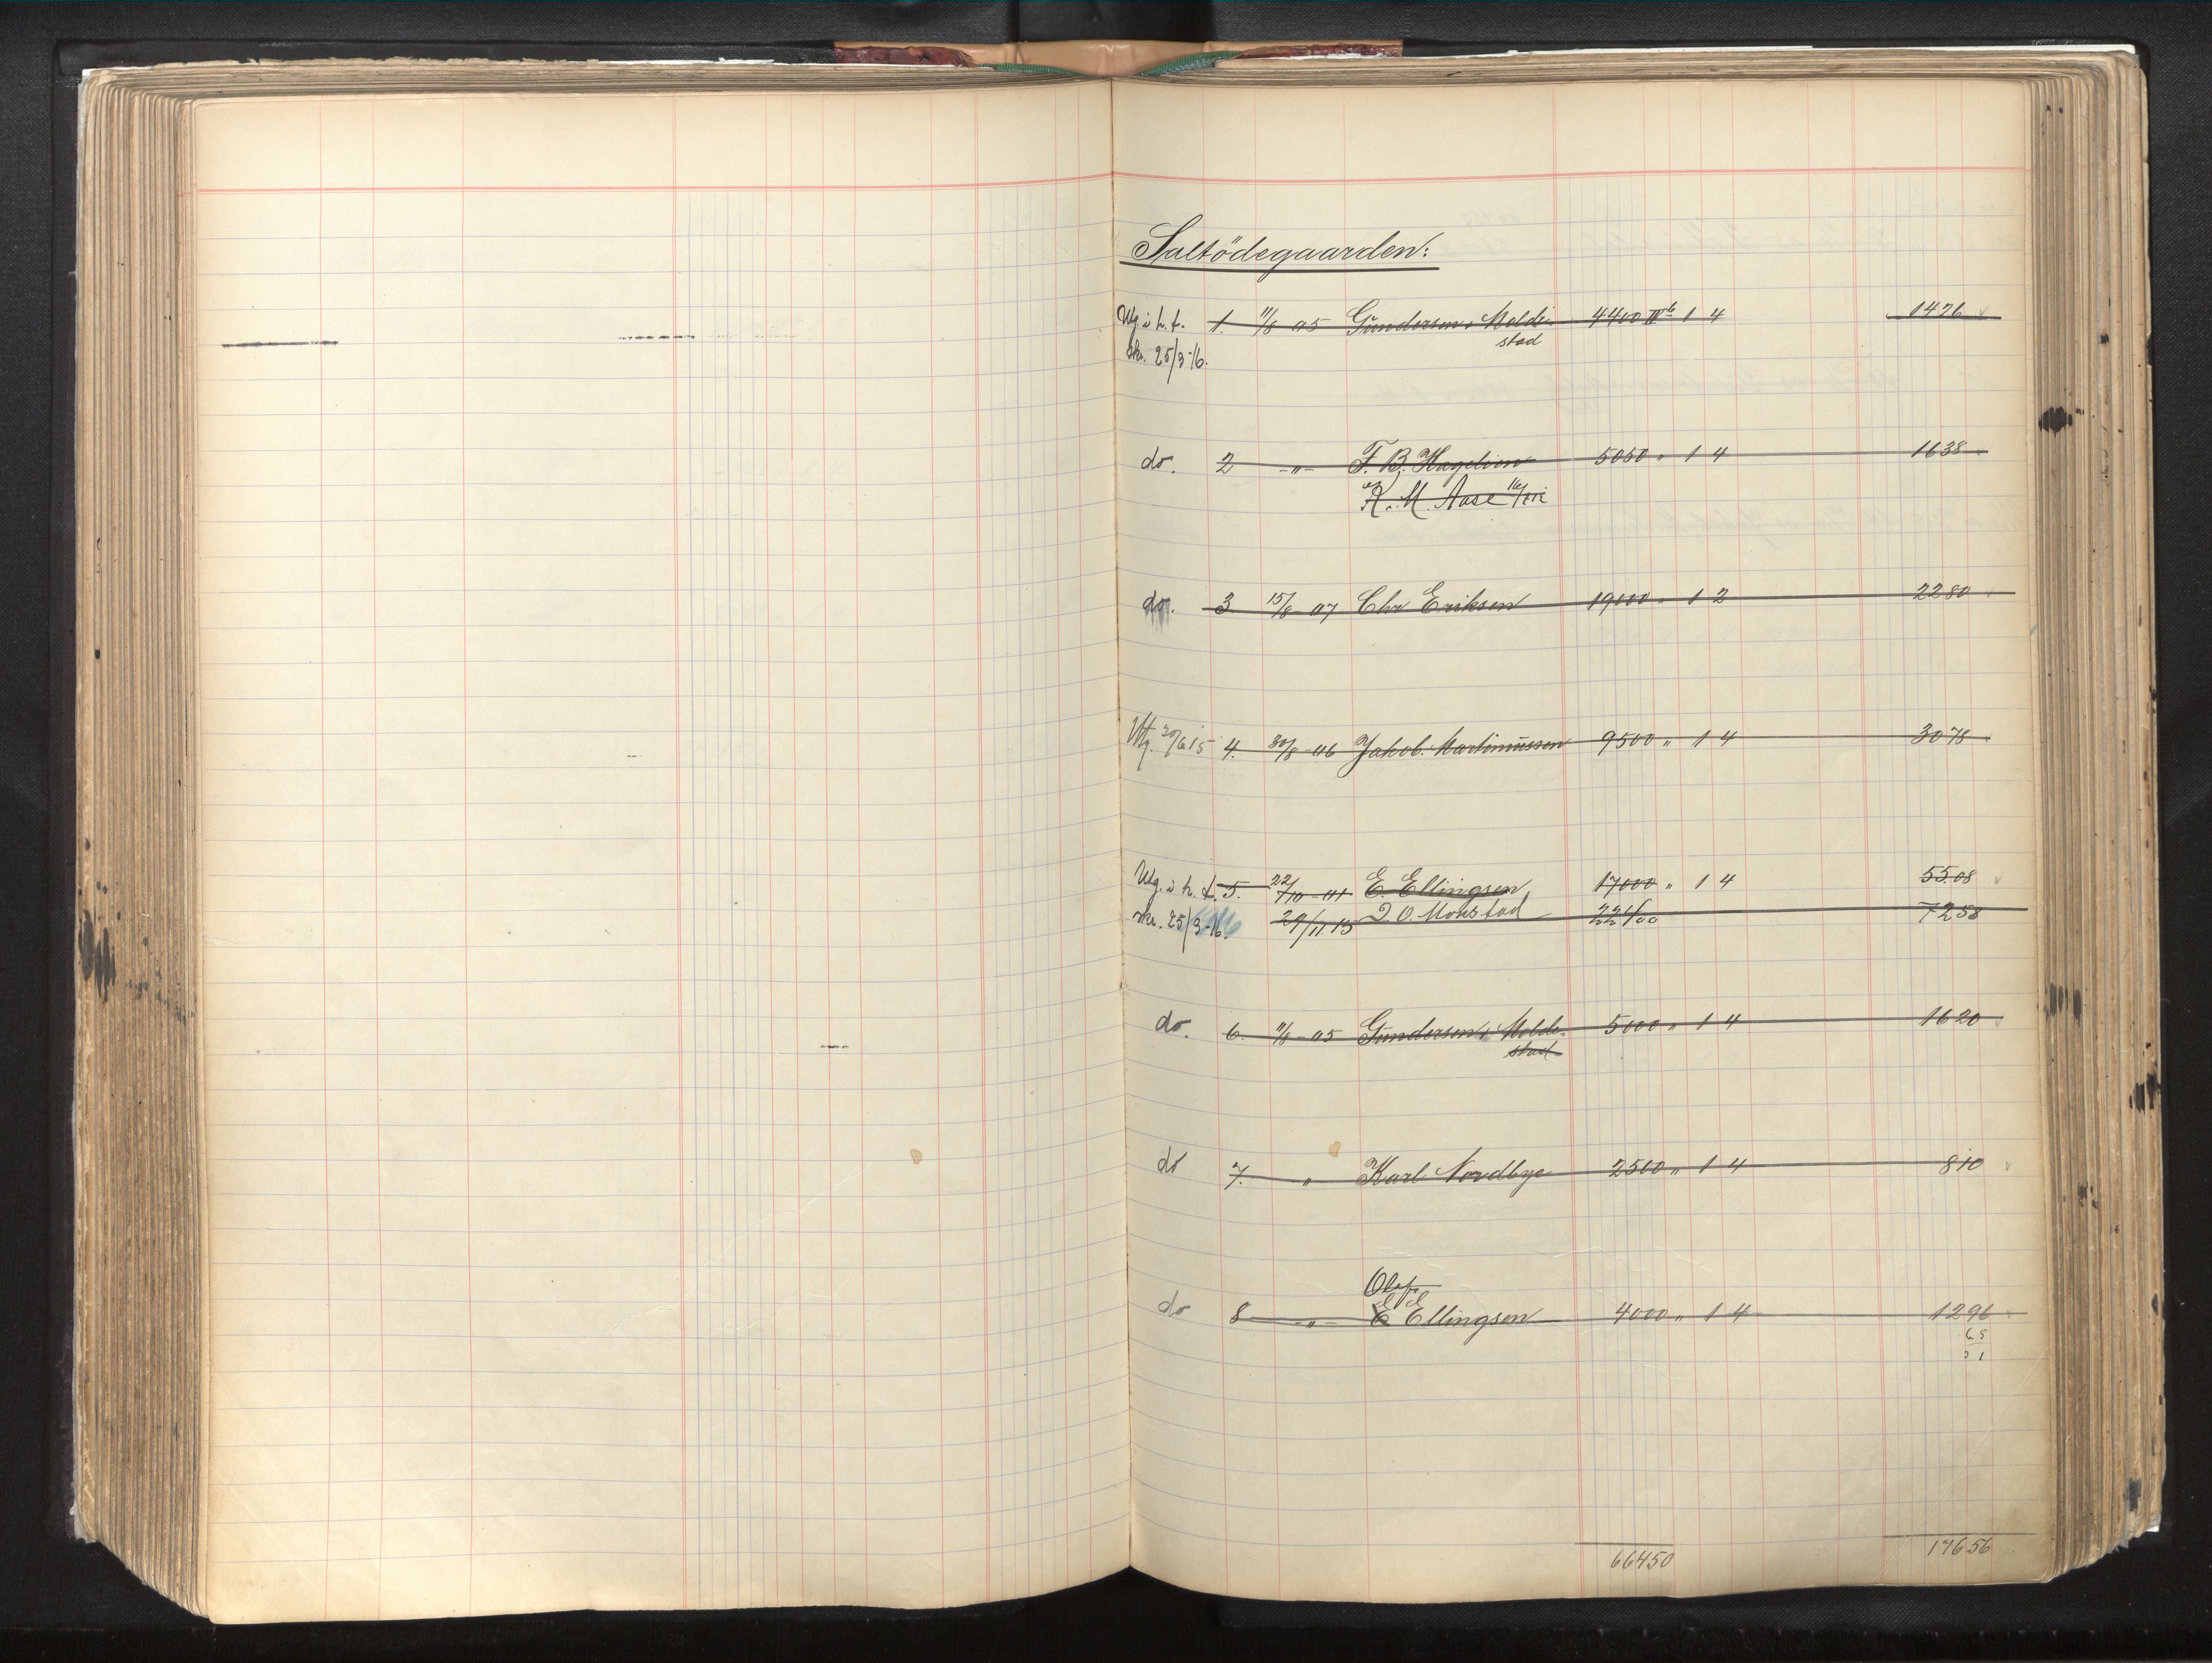 Saltödegaarden:
Utg. i h. t. 1. 11/8 05 Gundersen & Molde- 4400 IVb 1 4 1426
skr. 25/3-16. stad
do. 2 -"- F. B. Hagelien 5050 " 1 4 1638
K. M. Aase
do. 3. 15/8-07 Chr Eriksen 19000 " 1 2 2280
Utg. 30/6 15 4. 30/8-06 Jakob Martinussen 9500 " 1 4 3078
Utg. i h. t. 5. 22/10-01 E. Ellingsen 17000 " 1 4 5508
skr. 25/3-16. 29/11 13 O. Monstad 22400 7258
do. 6. 11/8-05 Gundersen & Molde- 5000 " 1 4 1620
stad
do 7. " Karl Nordbye 2500 " 1 4 810
Oluf
do 8 -"- E Ellingsen 4000 " 1 4 1296
65
66450 17656